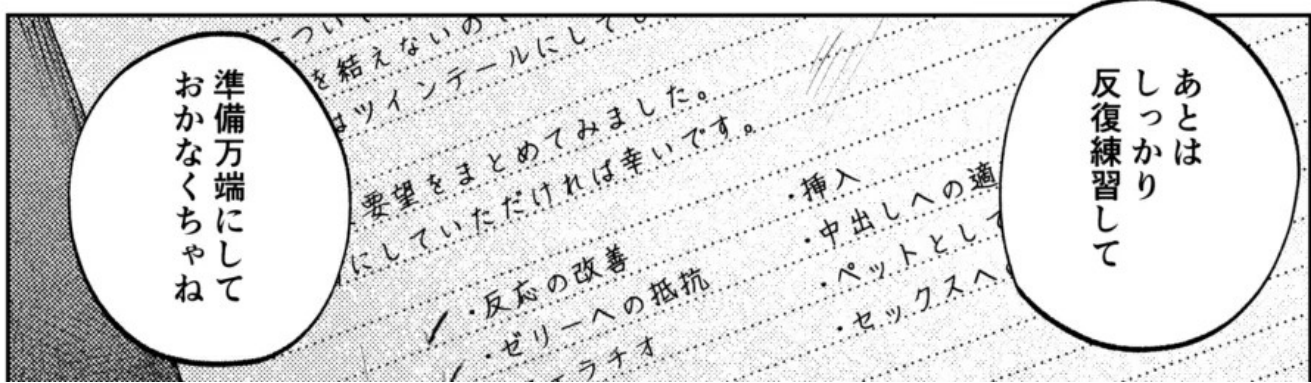 あとは
しっかり
反復練習して
準備万端にして
おかなくちゃね
を結えないの
ツインテールにして
要望をまとめてみました。
にしていただければ幸いです。
・反応の改善
・ゼリーへの抵抗
ラチオ
・挿入
・中出しへの適
・ペットとして
・セックスへ